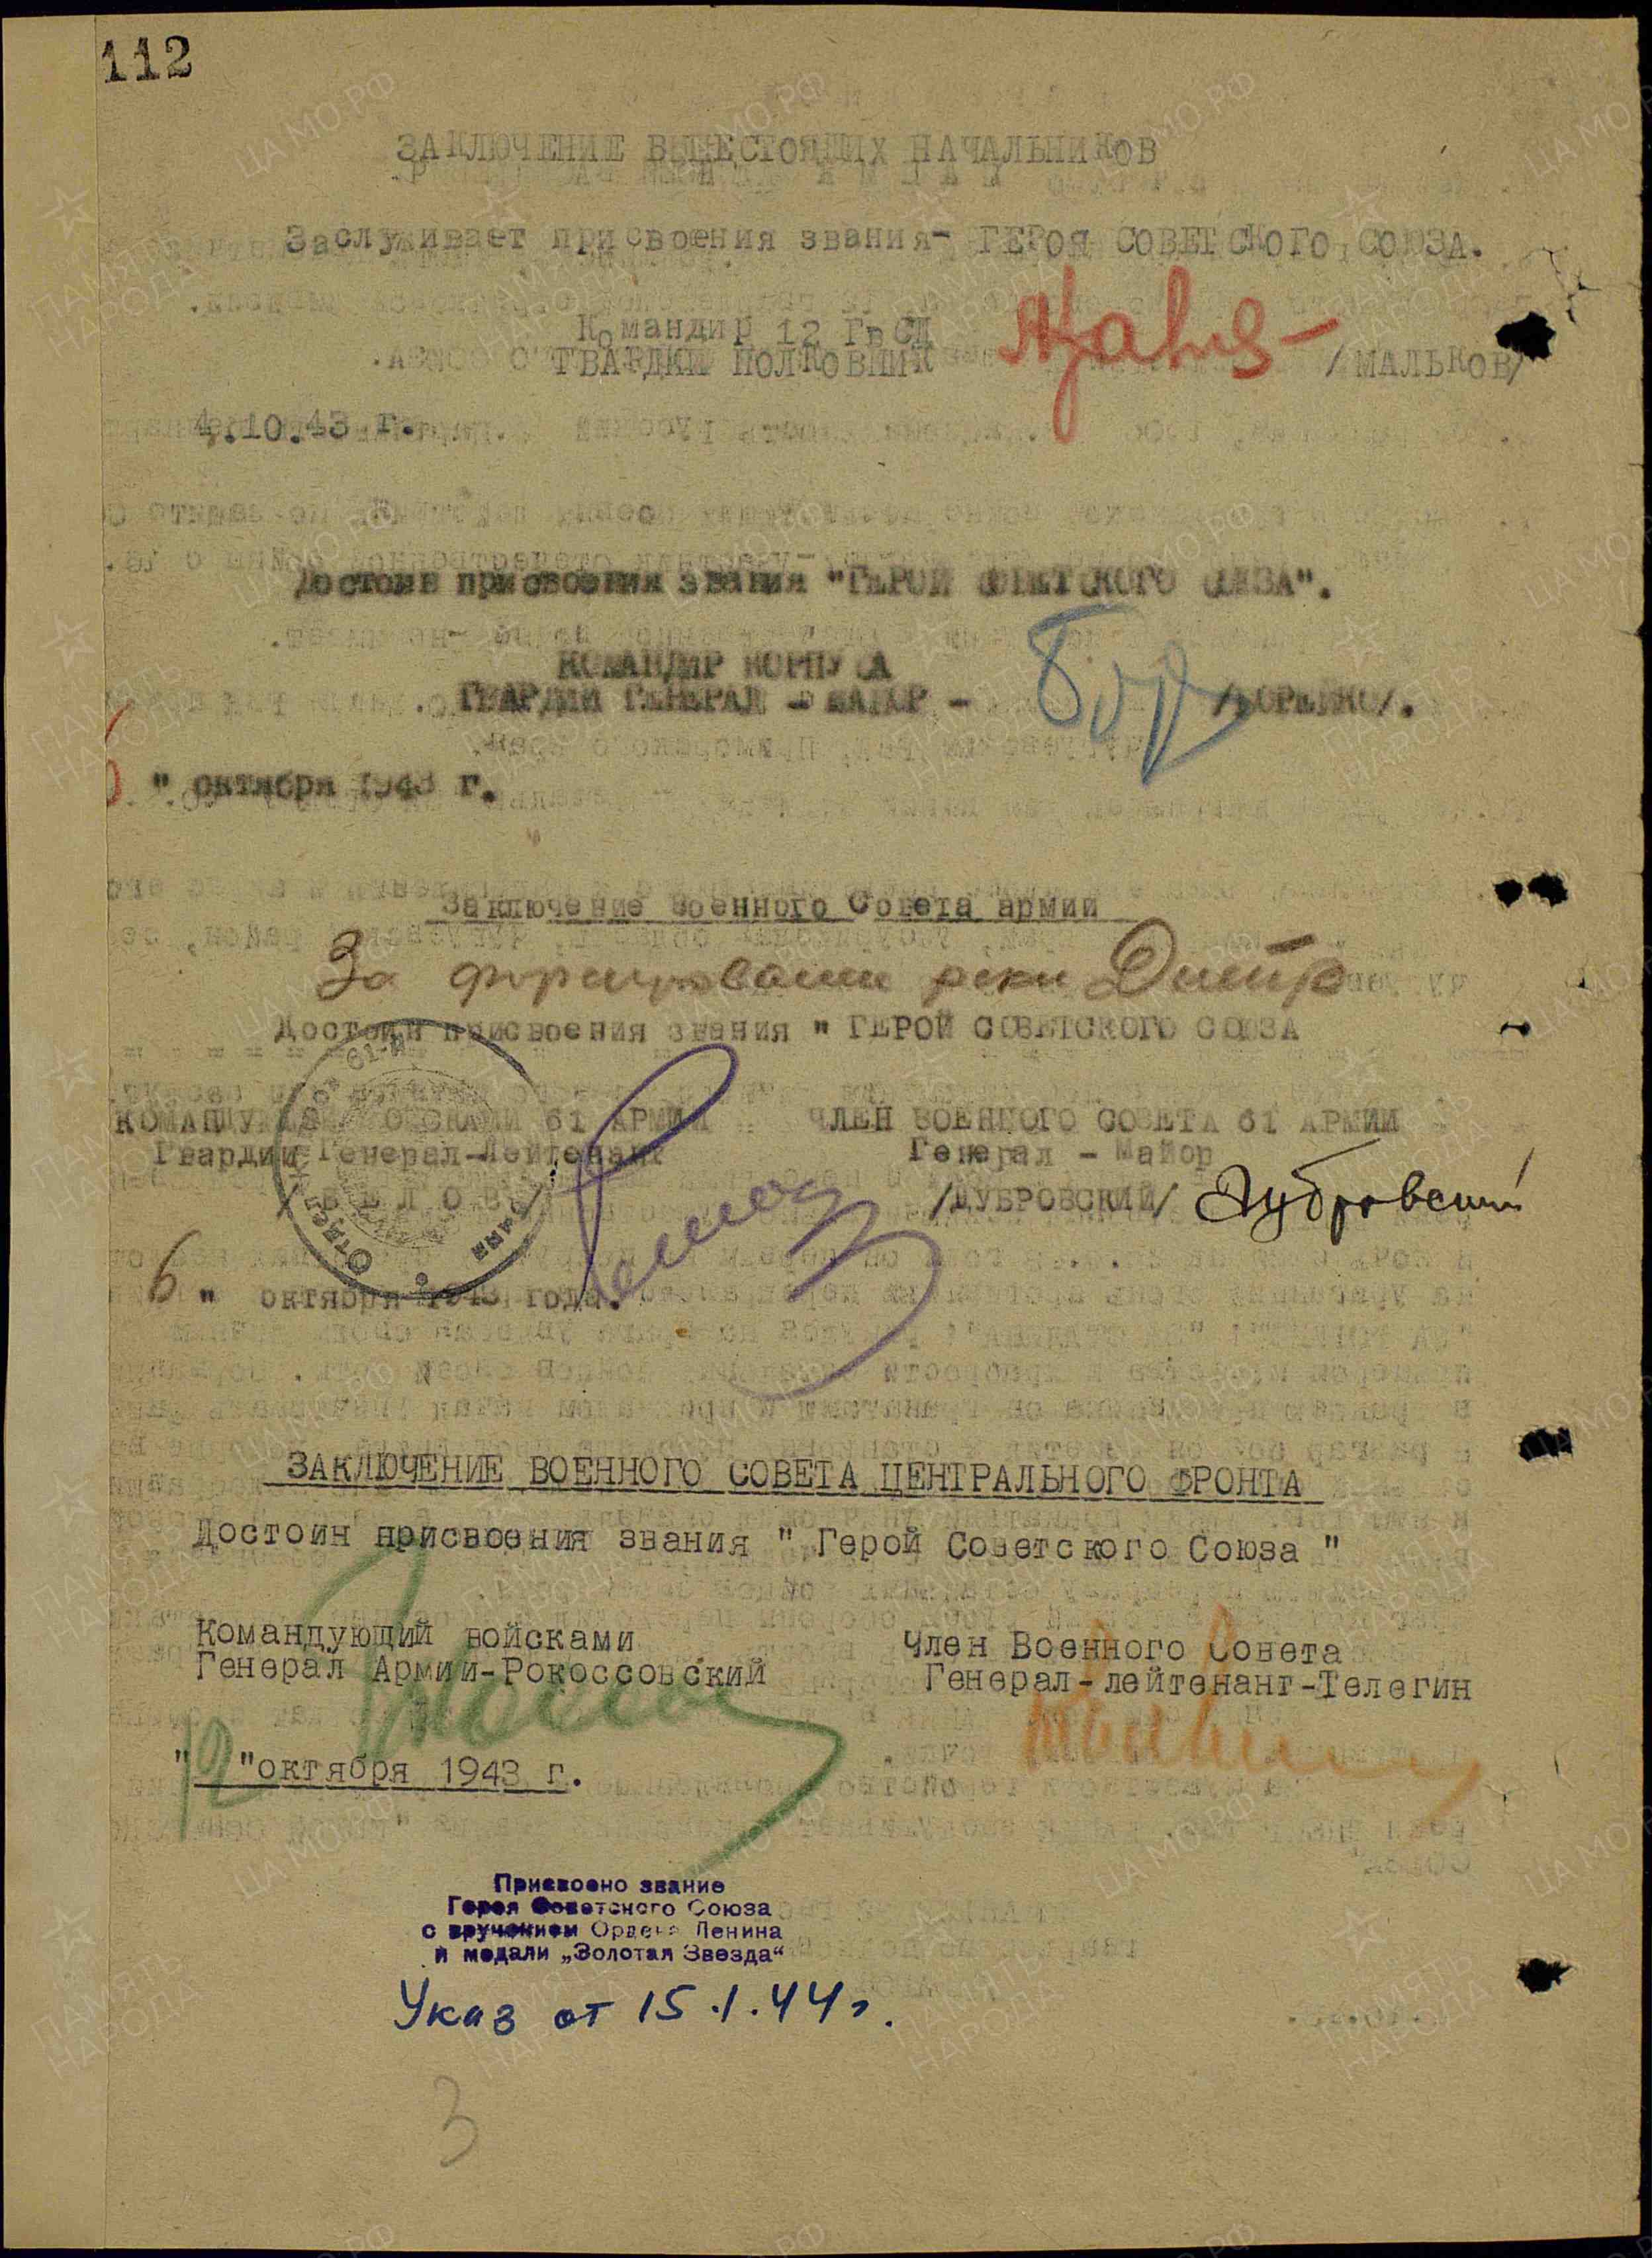 112
ЗАКЛЮЧЕНИЕ ВЫШЕСТОЯЩИХ НАЧАЛЬНИКОВ
Заслуживает присвоения звания- ГЕРОЯ СОВЕТСКОГО СОЮЗА.
Командир 12 ГвСД
ГВАРДИИ ПОЛКОВНИК /МАЛЬКОВ/
4.10.43 г.
Достоин присвоения звания "ГЕРОЙ СОВЕТСКОГО СОЮЗА".
КОМАНДИР КОРПУСА
ГВАРДИИ ГЕНЕРАЛ - МАЙОР - /БОРЕЙКО/.
" октября 1943 г.
Заключение Военного Совета армии
За форсирование реки Днепр
Достоин присвоения звания " ГЕРОЙ СОВЕТСКОГО СОЮЗА
КОМАНДУЮЩИЙ ВОЙСКАМИ 61 АРМИИ ЧЛЕН ВОЕННОГО СОВЕТА 61 АРМИИ
Гвардии Генерал-Лейтенант Генерал - Майор
/ Б Е Л О В / /ДУБРОВСКИЙ/ Дубровский
6 " октября 1943 года.
ЗАКЛЮЧЕНИЕ ВОЕННОГО СОВЕТА ЦЕНТРАЛЬНОГО ФРОНТА
Достоин присвоения звания " Герой Советского Союза "
Командующий войсками Член Военного Совета
Генерал Армии-Рокоссовский Генерал-лейтенант-Телегин
"12"октября 1943 г.
Присвоено звание
Героя Советского Союза
с вручением Ордена Ленина
и медали „Золотая Звезда“
Указ от 15.1.44 г.
3